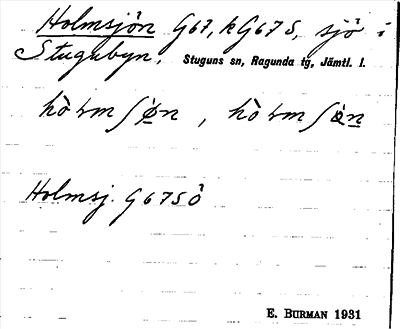 Holmsjön G67, kG67S, sjö i
Stugubyn. Stuguns sn, Ragunda tg, Jämtl. l.
Holmsj. G67SÖ
E. BURMAN 1931